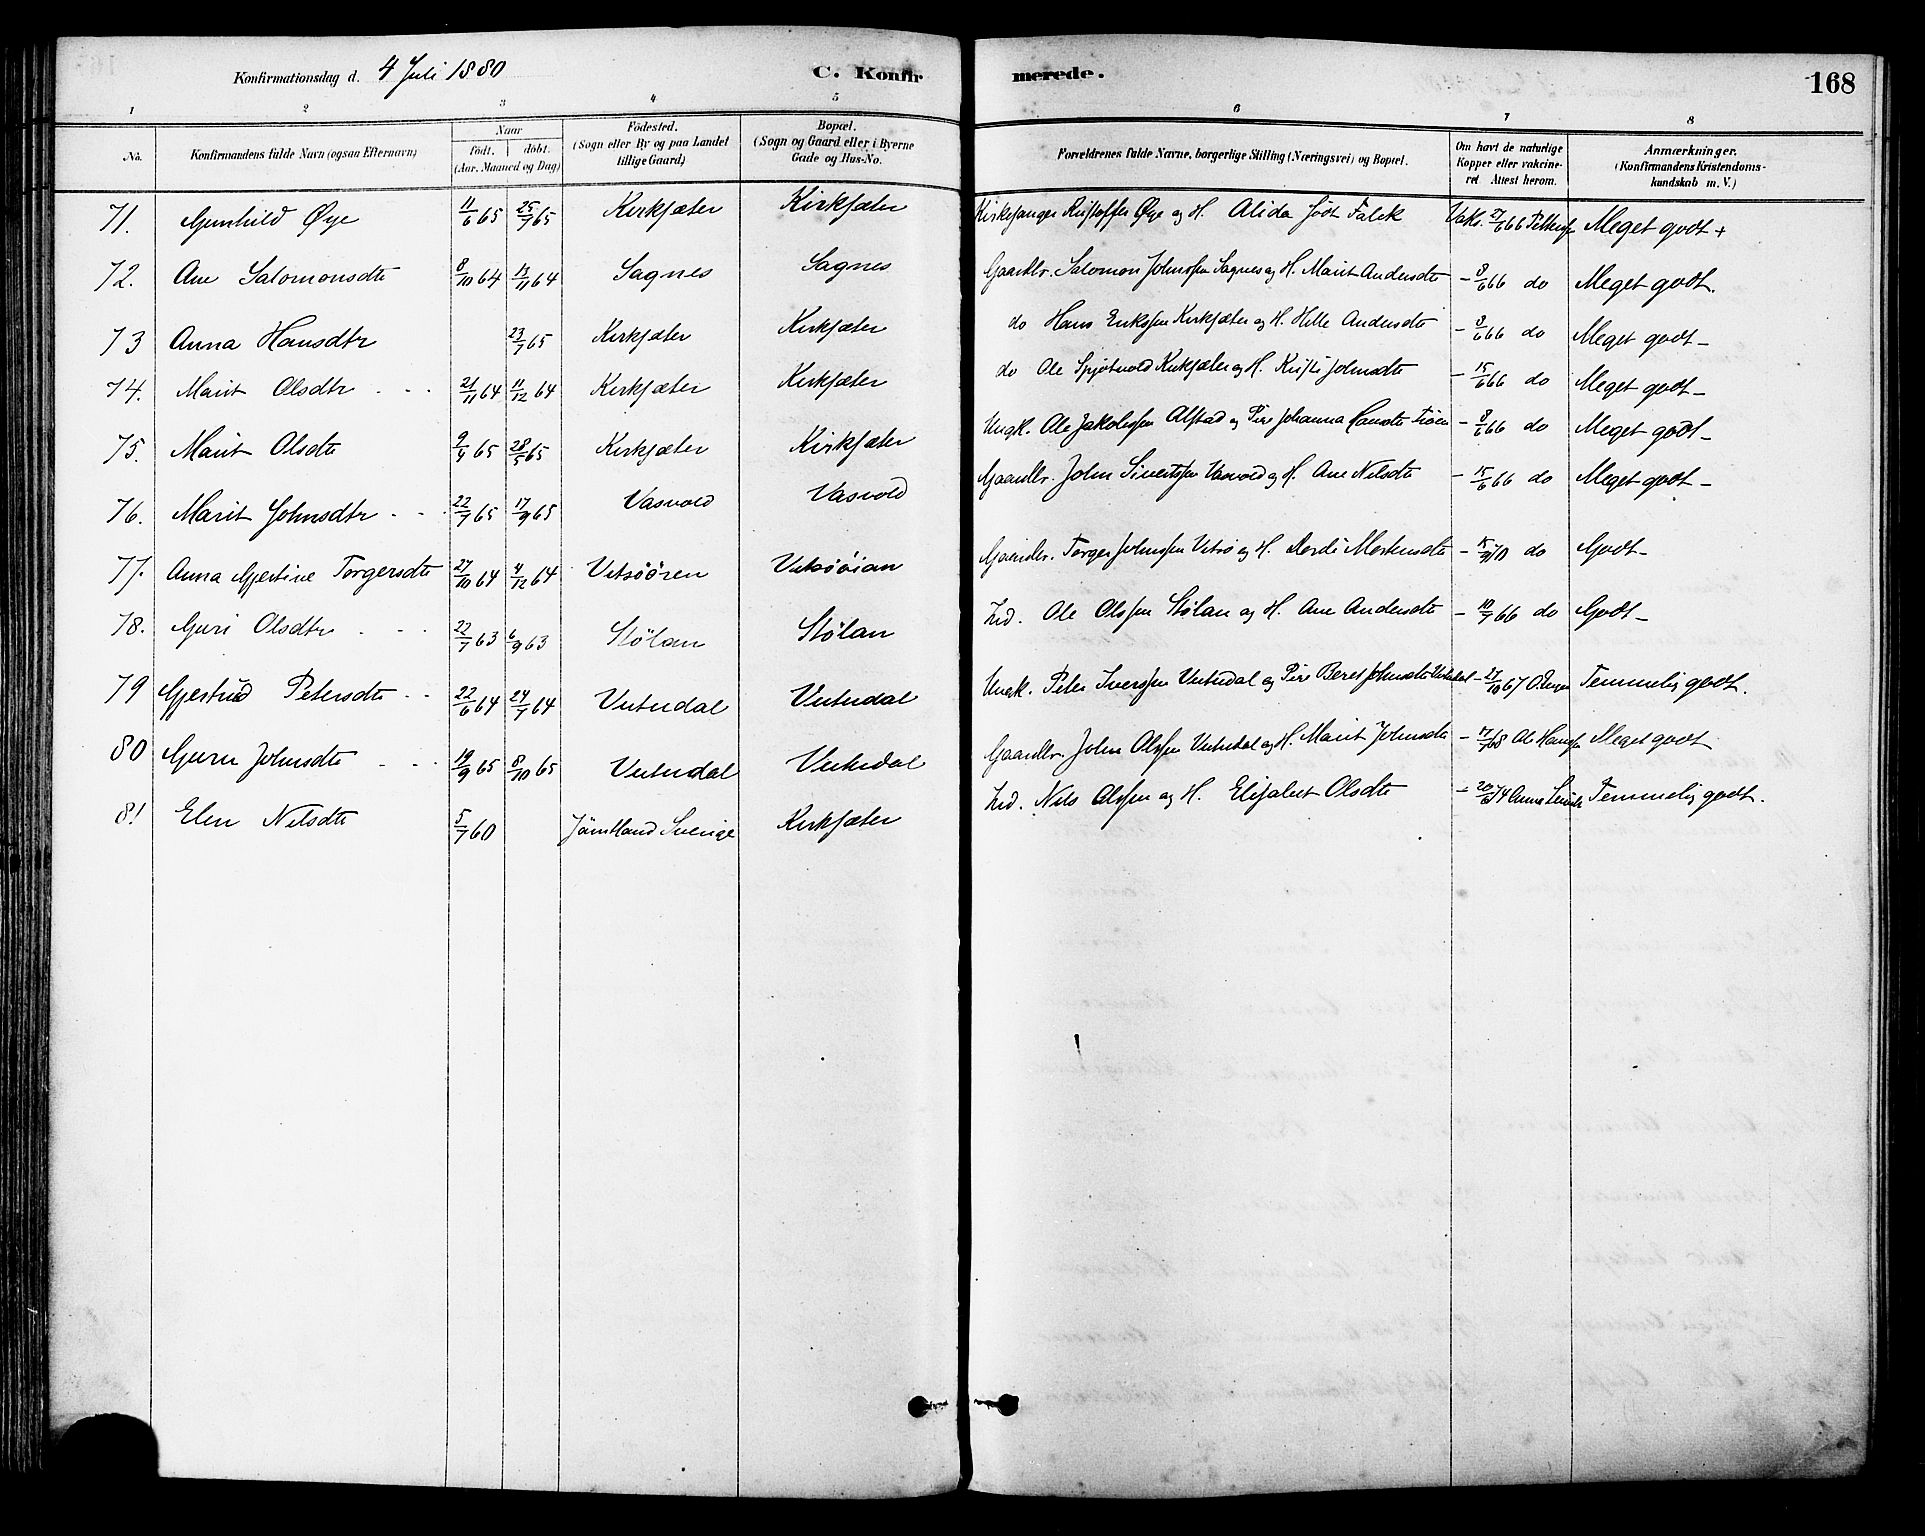 Konfirmationsdag d. 4 Juli 1880 C. Konfirmerede. 168
1 2 3 4 5 6 7 8
No. Konfirmandens fulde Navn (ogsaa Efternavn) Naar født. døbt. (Aar, Maaned og Dag) Fødested. (Sogn eller By og paa Landet tillige Gaard) Bopæl. (Sogn og Gaard eller i Byerne Gade og Hus-No. Forældrenes fulde Navne, borgerlige Stilling (Næringsvei) og Bopæl. Om havt de naturlige Kopper eller vakcineret. Attest herom. Anmærkninger. (Konfirmandens Kristendomskundskab m. V.)
71. Gunhild Øye 11/6 65 25/7 65 Kirksæter Kirksæter Kirkesanger Kristoffer Øye og H. Alida født Falck Vakc. 27/6 66 Meget godt +
72. Ane Salomonsdtr 8/10 64 13/11 64 Sagnes Sagnes Gaardbr. Salomon Johnssen Sagnes og H. Marit Andersdtr - 8/6 66 do Meget godt.
73 Anna Hansdtr 23/7 65 Kirksæter Kirksæter do Hans Erikssen Kirksæter og H. Hille Andersdtr - 8/6 66 do Meget godt -
74. Marit Olsdtr 21/11 64 11/12 64 Kirksæter Kirksæter do Ole Spjøtvold Kirksæter og H. Kristi Johnsdtr - 15/6 66 do Meget godt -
75. Marit Olsdtr 9/4 65 28/5 65 Kirksæter Kirksæter Ungk. Ole Jakobssen Alstad og Pige Johanna Hansdtr - 8/6 66 do Meget godt -
76. Marit Johnsdtr 22/7 65 17/9 65 Vasvold Vasvold Gaardbr. John Sivertssen Vasvold og H. Ane Nilsdtr - 15/6 66 do Meget godt -
77. Anna Gjertine Torgersdtr 27/10 64 4/12 64 Vitsøøren Vitsøøian Gaardbr. Torger Johnssen Vitsø og H. Dordi Mortensdtr - 15/9 70 do Godt -
78. Guri Olsdtr 22/7 63 6/9 63 Stølan Stølan Ind. Ole Olssen Stølan og H. Ane Andersdtr - 10/7 66 do Godt -
79 Gjertrud Petersdtr 22/6 64 24/7 64 Vutudal Vutudal Ungk. Peter Iverssen Vutudal og Pige Beret Johnsdtr Vutudal - 27/10 67 Temmelig godt.
80 Guru Johnsdtr 19/9 65 8/10 65 Vutudal Vutudal Gaardbr. John Olssen Vutudal og H. Marit Johnsdtr - 68 Ole Hanssen Meget godt
81 Elen Nilsdtr 5/7 60 Jämtland Sverige Kirksæter Ind. Nils Olssen og H. Elisabet Olsdtr - 20/6 74 Temmelig godt.